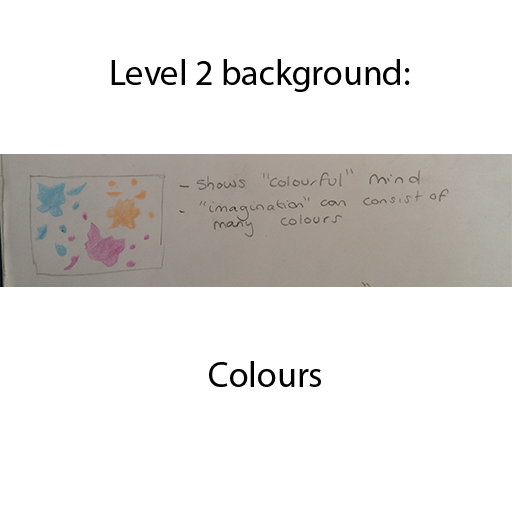 Level 2 background:
- shows "colourful" mind
- "imagination" can consist of
many colours
Colours